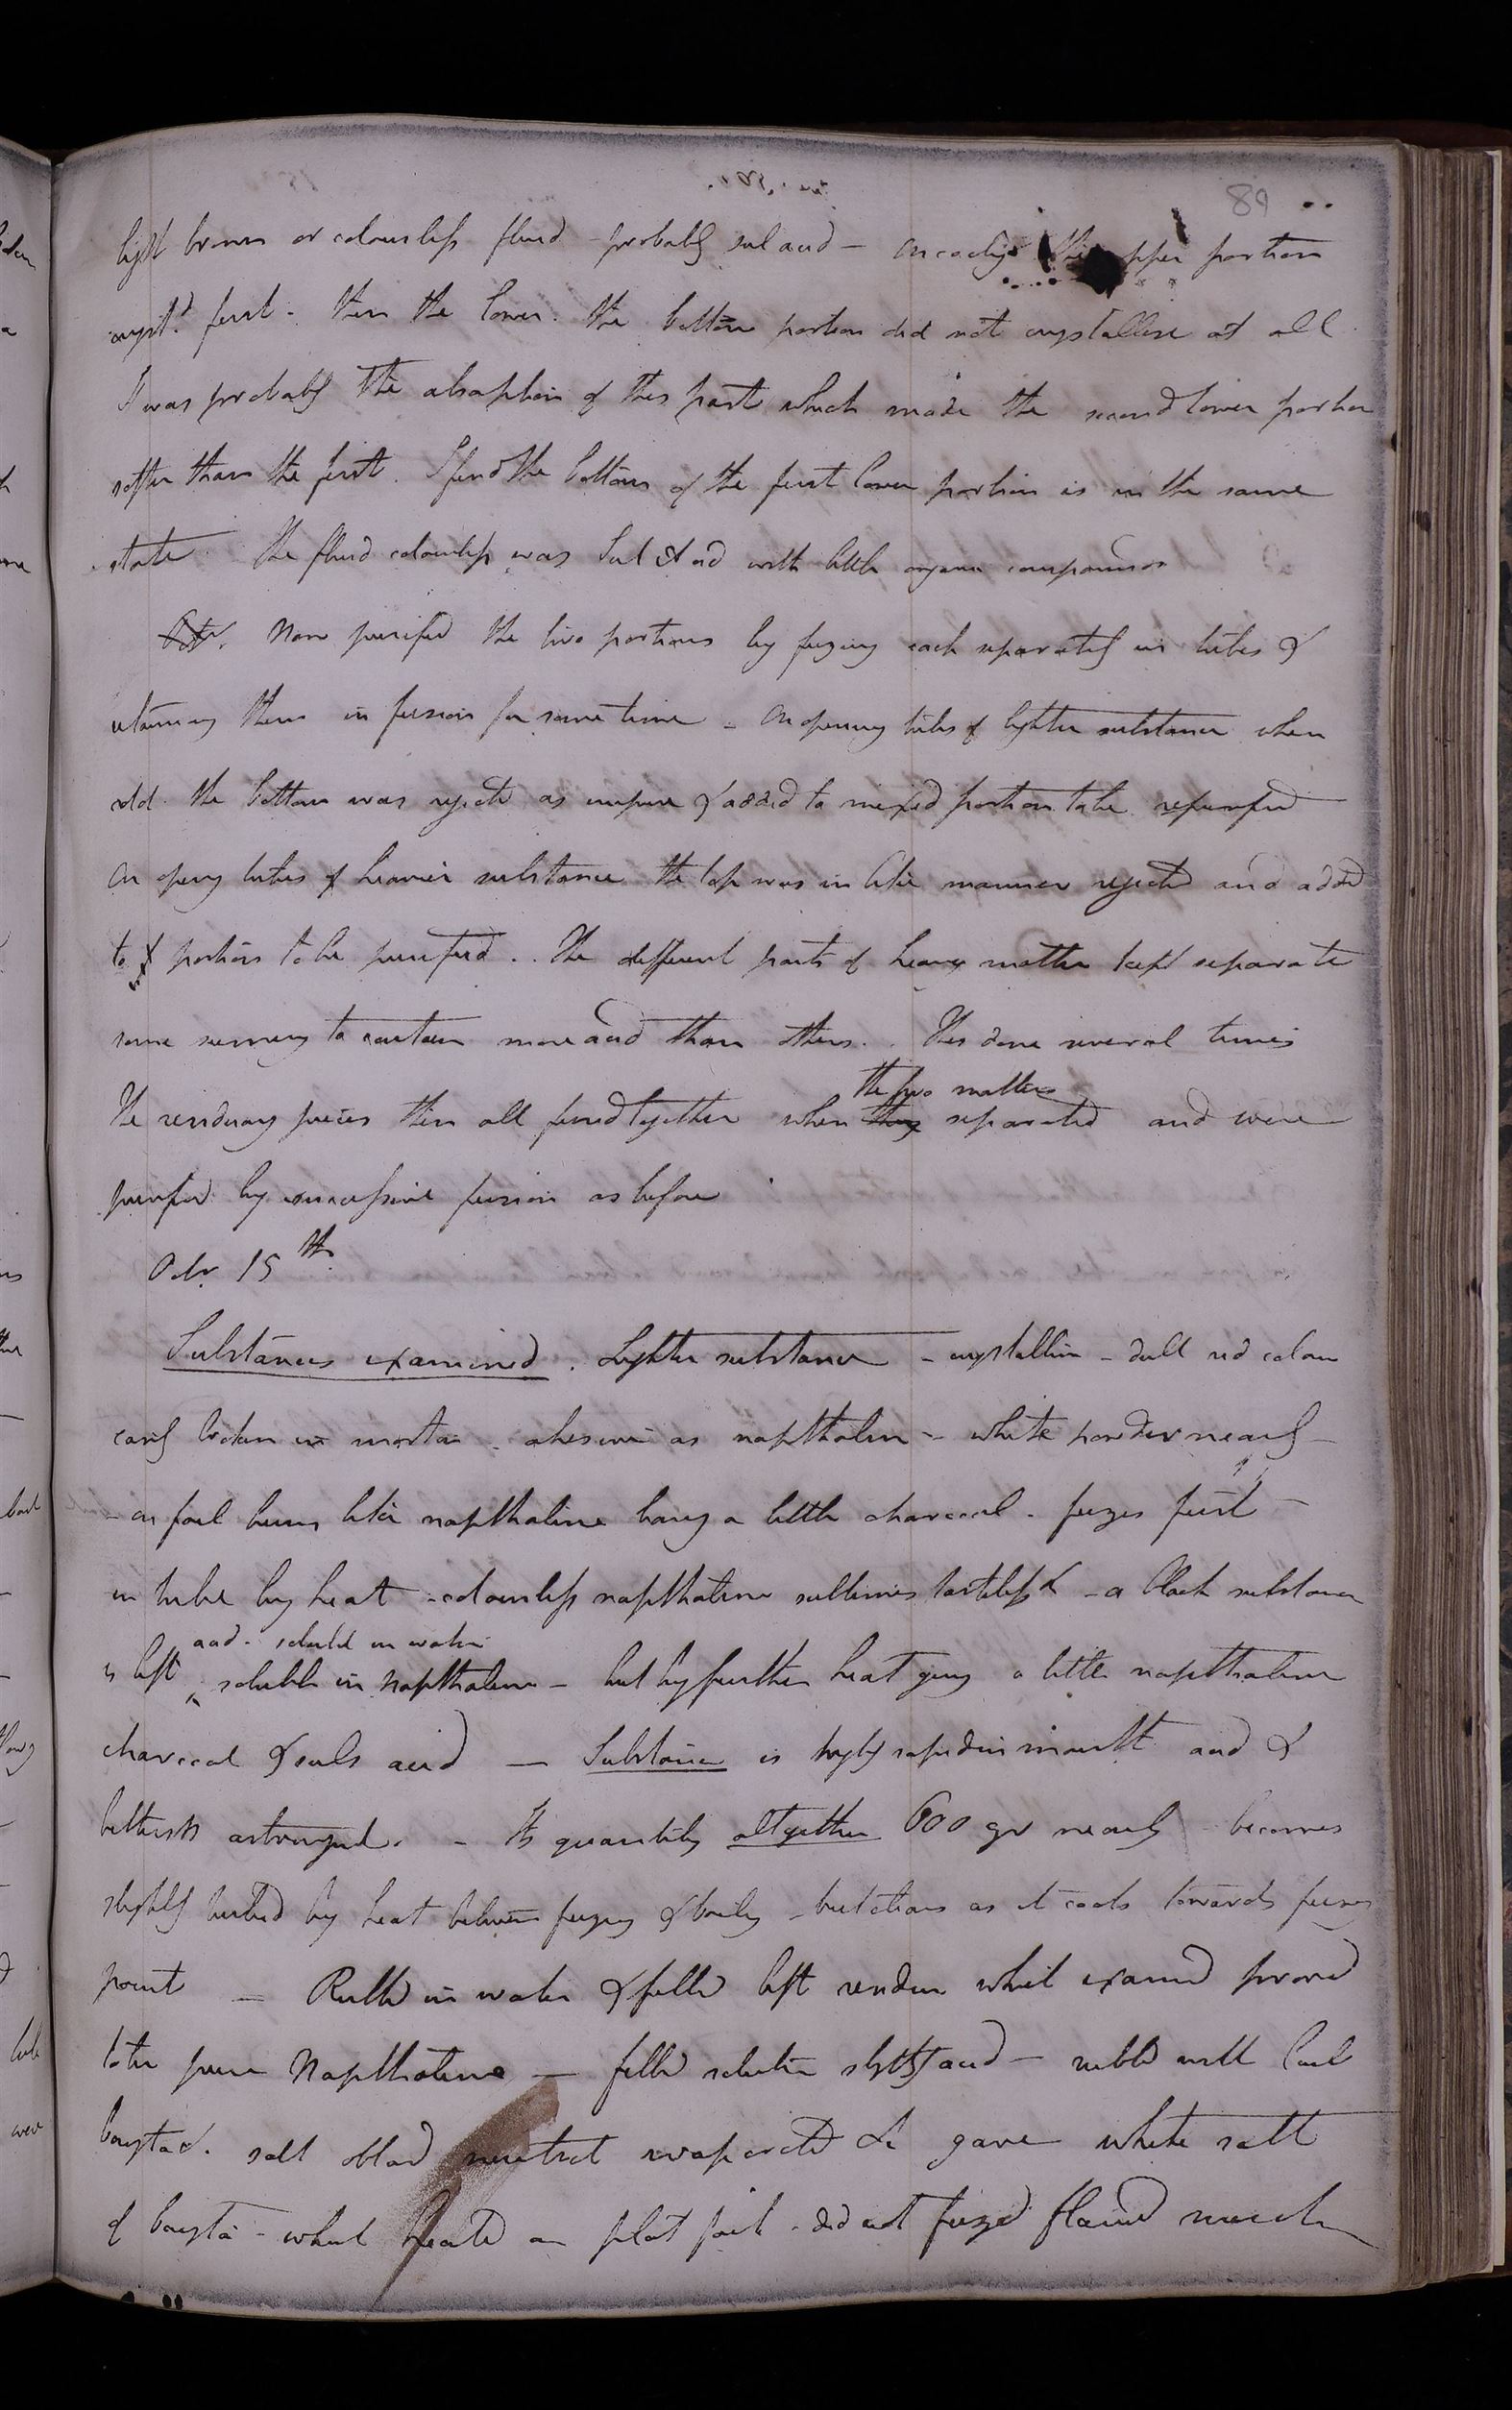 89
light brown or colourless fluid - probably sul acid - on cooling the upper portion
crystd. first - then the lower. the bottom portion did not crystallise at all
I was probably the absorption of this part which made the second lower portion
softer than the first. I find the bottom of the first lower portion is in the same
state. The fluid colourless was Sul Acid with little organic compounds
Now purified the two portions by fuzing each separately in tubes &
retaining them in fusion for some time - On opening tubes of lighter substance when
cold the bottom was rejectd as impure & added to mixed portion to be repurified
On openg tubes of heavier substance the top was in like manner rejected and added
to portions to be purified .. The different parts of heavy matter kept separate
some seeming to contain more acid than others. This done several times
the two matters
The residuary pieces then all fused together when they separated and were
purified by successive fusion as before
Octr 15th
Substances examined. Lighter substance - crystalline - dull red colour
easily broken in mortar - adhesive as napthaline - white powder nearly -
- on foil burns like napthaline leavg a little charcoal - fuzes first -
in tube by heat - colourless napthaline sublimes tasteless & - a black substance
acid - soluble in water
is left soluble in Napthaline - but by further heat givg a little napthaline
charcoal & suls acid - Substance is highly sapid in mouth acid &
bitterish astringent. - Its quantity altogether 600 gr nearly becomes
slightly turbid by heat between fuzing & boiling - but clears as it cools towards fuzing
point - Rubbd in water & filtd left residue which examd proved
to be pure Napthaline - filtd solution slightly acid - rubbd with Carb
baryta &. salt obtad neutral evaporated &c gave white salt
of baryta - which heatd on plat foil - did not fuze flamed much